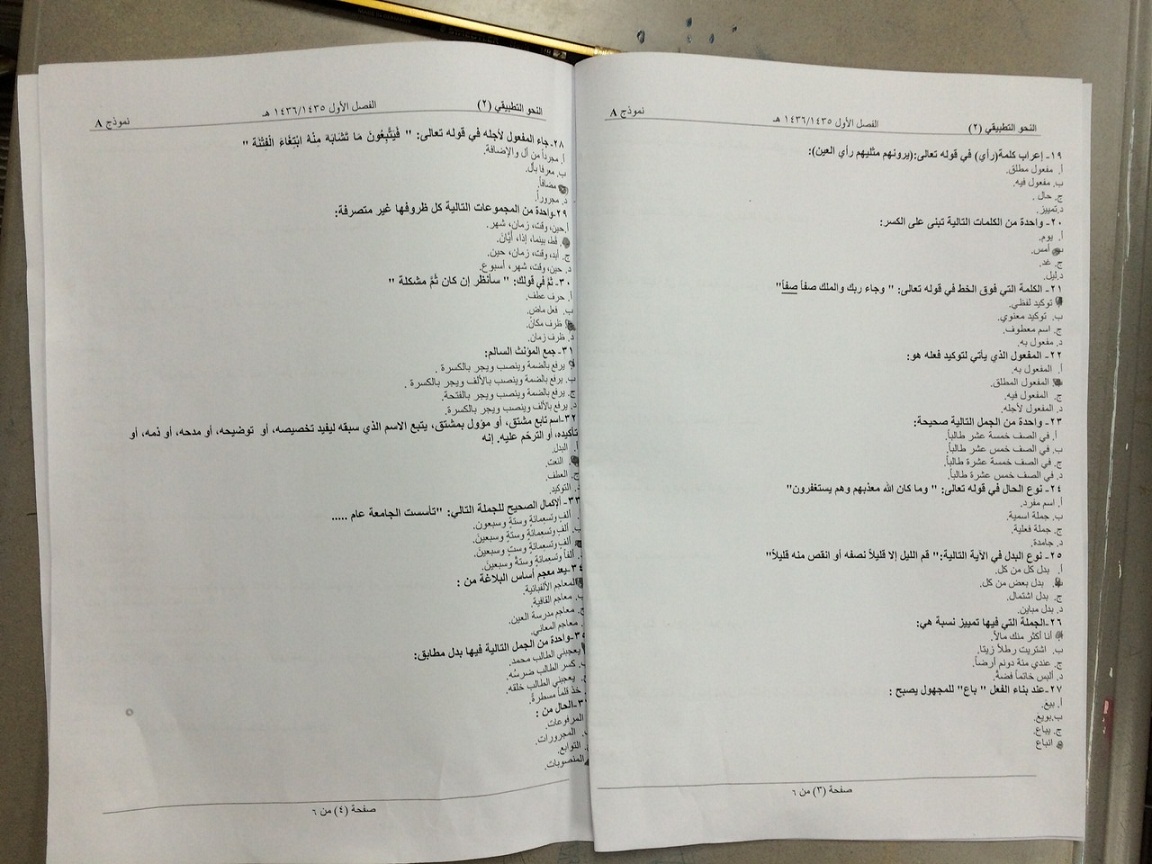 النحو التطبيقي (٢) الفصل الأول ١٤٣٦/١٤٣٥ هـ نموذج A
١٩- إعراب كلمة(رأي) في قوله تعالى:(يرونهم مثليهم رأي العين):
أ. مفعول مطلق.
ب. مفعول فيه.
ج. حال .
د. تمييز.
٢٠- واحدة من الكلمات التالية تبنى على الكسر:
أ. يوم.
ب. أمس.
ج. غد.
د. ليل.
٢١- الكلمة التي فوق الخط في قوله تعالى: " وجاء ربك والملك صفاً صفاً"
توكيد لفظي.
ب. توكيد معنوي.
ج. اسم معطوف.
د. مفعول به.
٢٢- المفعول الذي يأتي لتوكيد فعله هو:
أ. المفعول به.
المفعول المطلق.
ج. المفعول فيه.
د. المفعول لأجله.
٢٣- واحدة من الجمل التالية صحيحة:
أ. في الصف خمسة عشر طالباً.
ب. في الصف خمس عشر طالباً.
ج. في الصف خمسة عشرة طالباً.
د. في الصف خمس عشرة طالباً.
٢٤- نوع الحال في قوله تعالى: " وما كان الله معذبهم وهم يستغفرون"
أ. اسم مفرد.
ب. جملة اسمية.
ج. جملة فعلية.
د. جامدة.
٢٥- نوع البدل في الآية التالية:" قم الليل إلا قليلاً نصفه أو انقص منه قليلاً"
أ. بدل كل من كل.
بدل بعض من كل.
ج. بدل اشتمال.
د. بدل مباين.
٢٦-الجملة التي فيها تمييز نسبة هي:
أنا أكثر منك مالاً.
ب. اشتريت رطلاً زيتا.
ج. عندي منة دونم أرضاً.
د. ألبس خاتماً فضةً.
٢٧-عند بناء الفعل " باع" للمجهول يصبح :
أ. بيع.
ب. بويع.
ج. يباع.
انباع
صفحة (٣) من ٦
النحو التطبيقي (٢) الفصل الأول ١٤٣٦/١٤٣٥ هـ نموذج A
٢٨-جاء المفعول لأجله في قوله تعالى: " فَيَتَّبِعُونَ مَا تَشَابَهَ مِنْهُ ابْتِغَاءَ الْفِتْنَة "
أ. مجرداً من أل والإضافة.
ب. معرفا بأل.
مضافاً.
د. مجروراً.
٢٩-واحدة من المجموعات التالية كل ظروفها غير متصرفة:
أ. حين، وقت، زمان، شهر.
قط، بينما، إذا، أيّان.
ج. أبد، وقت، زمان، حين.
د. حين، وقت، شهر، أسبوع.
٣٠- ثمّ في قولك: " سأنظر إن كان ثَمَّ مشكلة "
أ. حرف عطف.
ب. فعل ماض.
ظرف مكان.
د. ظرف زمان.
٣١- جمع المؤنث السالم:
يرفع بالضمة وينصب ويجر بالكسرة .
ب. يرفع بالضمة وينصب بالألف ويجر بالكسرة .
ج. يرفع بالضمة وينصب ويجر بالفتحة.
د. يرفع بالألف وينصب ويجر بالكسرة.
٣٢-اسم تابع مشتق، أو مؤول بمشتق، يتبع الاسم الذي سبقه ليفيد تخصيصه، أو توضيحه، أو مدحه، أو ذمه، أو
تأكيده، أو الترحّم عليه. إنه
أ. البدل.
النعت.
ج. العطف.
التوكيد.
٣٣- الإكمال الصحيح للجملة التالي: "تأسست الجامعة عام .....
ألف وتسعمائة وستة وسبعون.
ألف وتسعمائة وستة وسبعين.
ألف وتسعمائة وست وسبعين.
ألفاً وتسعمائة وستة وسبعين.
٣٤-يعد معجم أساس البلاغة من :
المعاجم الألفبائية.
معاجم القافية.
معاجم مدرسة العين.
معاجم المعاني.
٣٥-واحدة من الجمل التالية فيها بدل مطابق:
يعجبني الطالب محمد.
كسر الطالب ضرسُه.
يعجبني الطالب خلقه.
خذ قلماً مسطرةً.
الحال من :
المرفوعات.
المجرورات.
التوابع.
المنصوبات.
صفحة (٤) من ٦